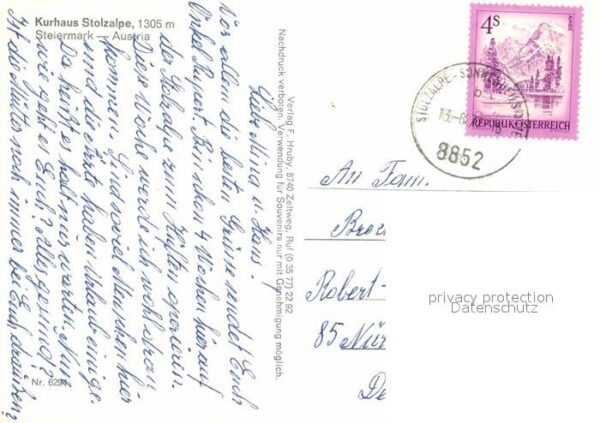 Kurhaus Stolzalpe, 1305 m
Steiermark — Austria
Liebe Mina u. Hans.
Vor allem die besten Grüsse sendet Euch
Onkel Rupert. Bin schon 4 Wochen hier auf
der Stolzalpe zum Hüften operieren.
Diese Woche werde ich wohl dran
kommen. Sind soviel Menschen hier
und die Ärzte haben Urlaub einige.
Da heißt es halt nur warten. Nun
wie geht es Euch? Alles gesund?
Ist die Mutter noch immer bei Euch draußen?
Nr. 6294
Verlag F. Hruby, 8740 Zeltweg, Ruf (0 35 77) 22 92
Nachdruck verboten. Verwendung für Souvenirs nur mit Genehmigung möglich.
4S
REPUBLIK ÖSTERREICH
STOLZALPE
8852
An Fam.
Robert-
85 Nür
privacy protection
Datenschutz